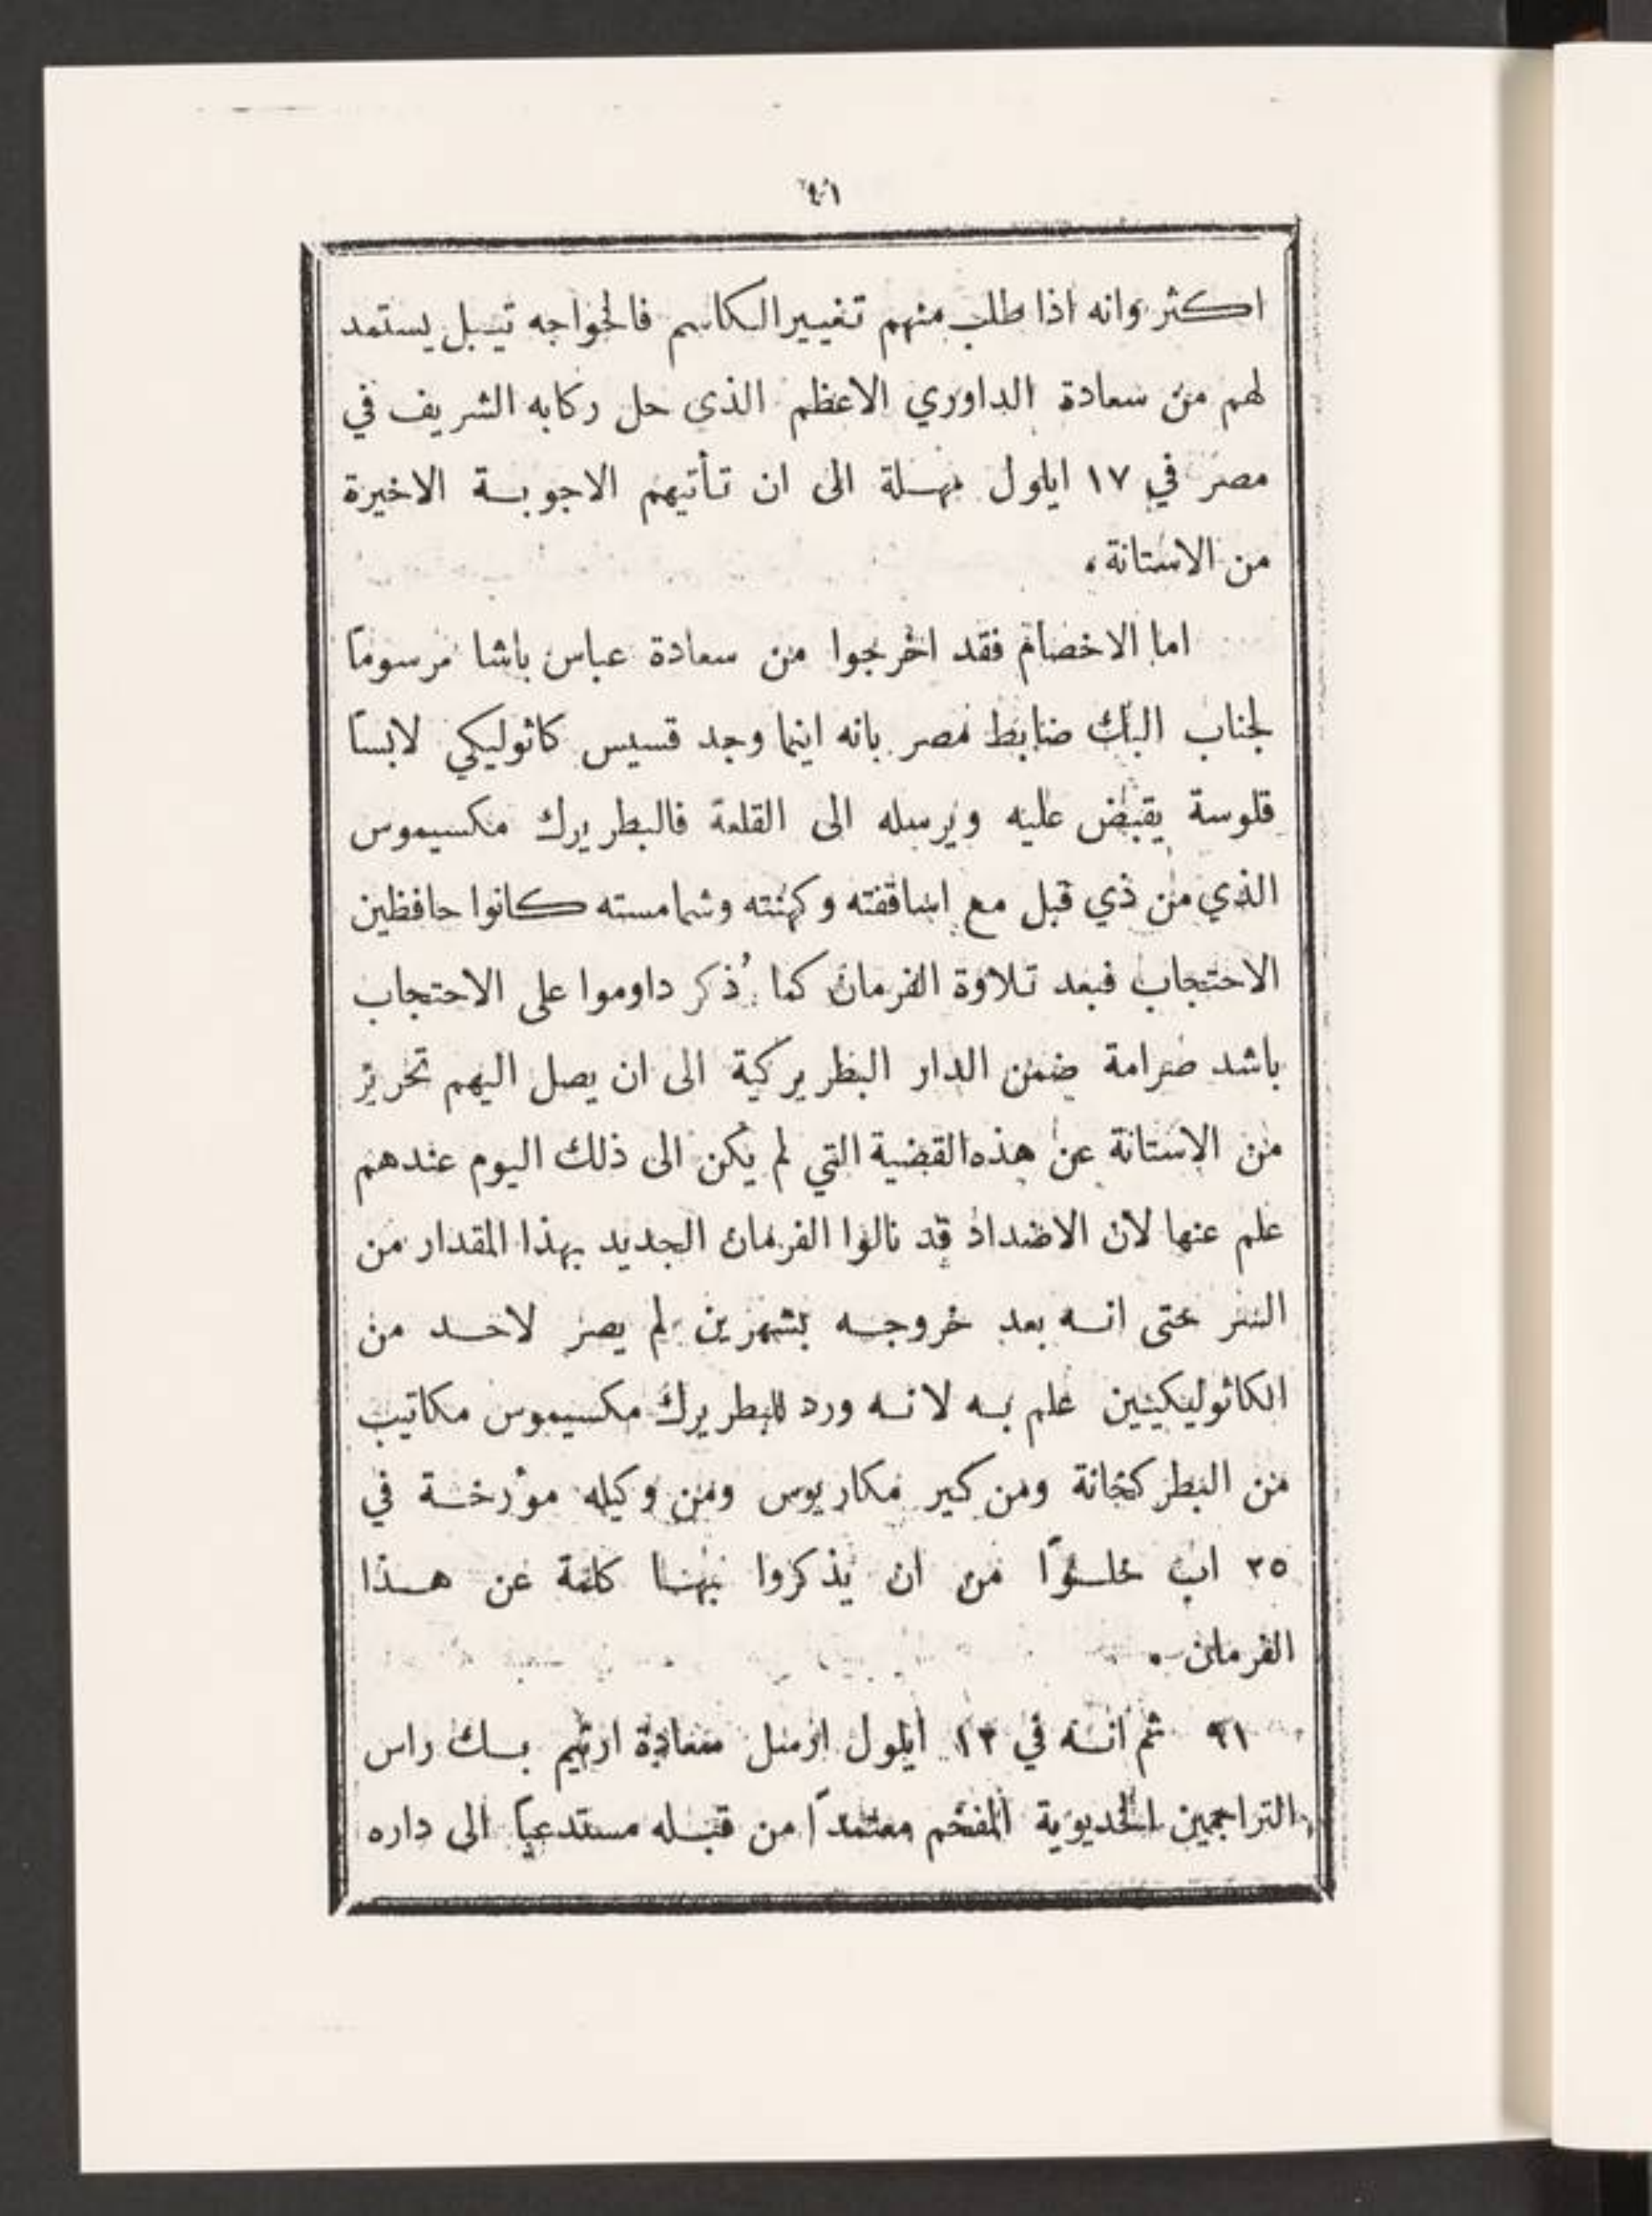 ٤١
اكثر وانه اذا طلب منهم تغيير الكاسم فالخواجه تيبل يستمد
لهم من سعادة الداوري الاعظم الذى حل ركابه الشريف في
مصر في ١٧ ايلول مهلة الى ان تأتيهم الاجوبة الاخيرة
من الاستانة ،
اما الاخصام فقد اخرجوا من سعادة عباس باشا مرسوماً
لجناب البك ضابط مصر بانه اينما وجد قسيس كاثوليكي لابساً
قلوسة يقبض عليه ويرسله الى القلعة فالبطريرك مكسيموس
الذي من ذي قبل مع اساقفته وكهنته وشمامسته كانوا حافظين
الاحتجاب فبعد تلاوة الفرمان كما ذُكر داوموا على الاحتجاب
باشد صرامة ضمن الدار البطريركية الى ان يصل اليهم تحرير
من الاستانة عن هذه القضية التي لم يكن الى ذلك اليوم عندهم
علم عنها لان الاضداد قد نالوا الفرمان الجديد بهذا المقدار من
السر حتى انه بعد خروجه بشهرين لم يصر لاحد من
الكاثوليكيين علم به لانه ورد للبطريرك مكسيموس مكاتيب
من البطركخانة ومن كير مكاريوس ومن وكيله مؤرخة في
٢٥ اب خلوًّا من ان يذكروا بها كلمة عن هذا
الفرمان .
٩١ ثم انه في ١٣ ايلول ارسل سعادة ارتيم بك راس
التراجمين الخديوية المفخم معتمداً من قبله مستدعياً الى داره